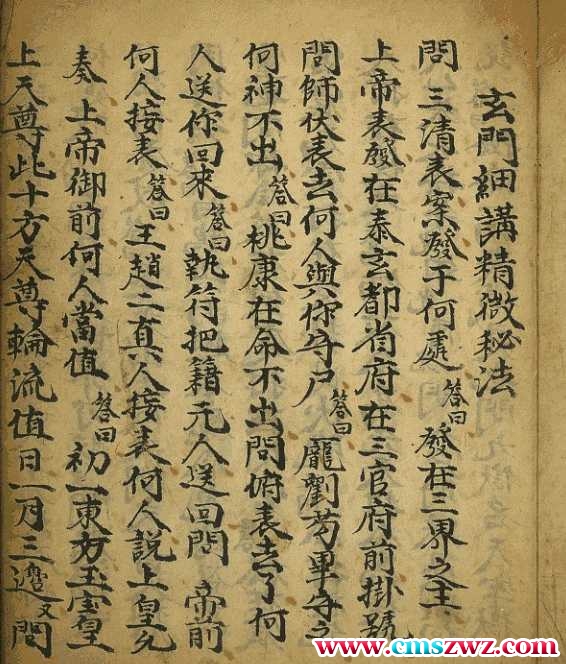 玄門細講精微秘法
問 三清表案發于何處 答曰 發在三界之主
上帝表發在泰玄都省府在三官府前掛號
問師伏表去何人與你守尸 答曰 龐劉苟畢守之
何神不出 答曰 桃康在命不出問俯表去了何
人送你回來 答曰 執符把籍元人送回問 帝前
何人接表 答曰 王趙二真人接表何人說上皇允
奏 上帝御前何人當值 答曰 初一東方玉寶皇
上天尊此十方天尊輪流值日一月三遶又問
www.cmszwz.com